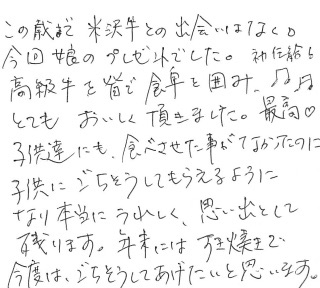 この歳まで 米沢牛との出会いはなく。
今回娘のプレゼントでした。初任給で
高級牛を皆で食卓を囲み、♫♬
とても おいしく頂きました。最高♡
子供達にも、食べさせた事がなかったのに
子供にごちそうしてもらえるように
なり本当にうれしく、思い出として
残ります。年末には すき焼きで
今度は、ごちそうしてあげたいと思います。